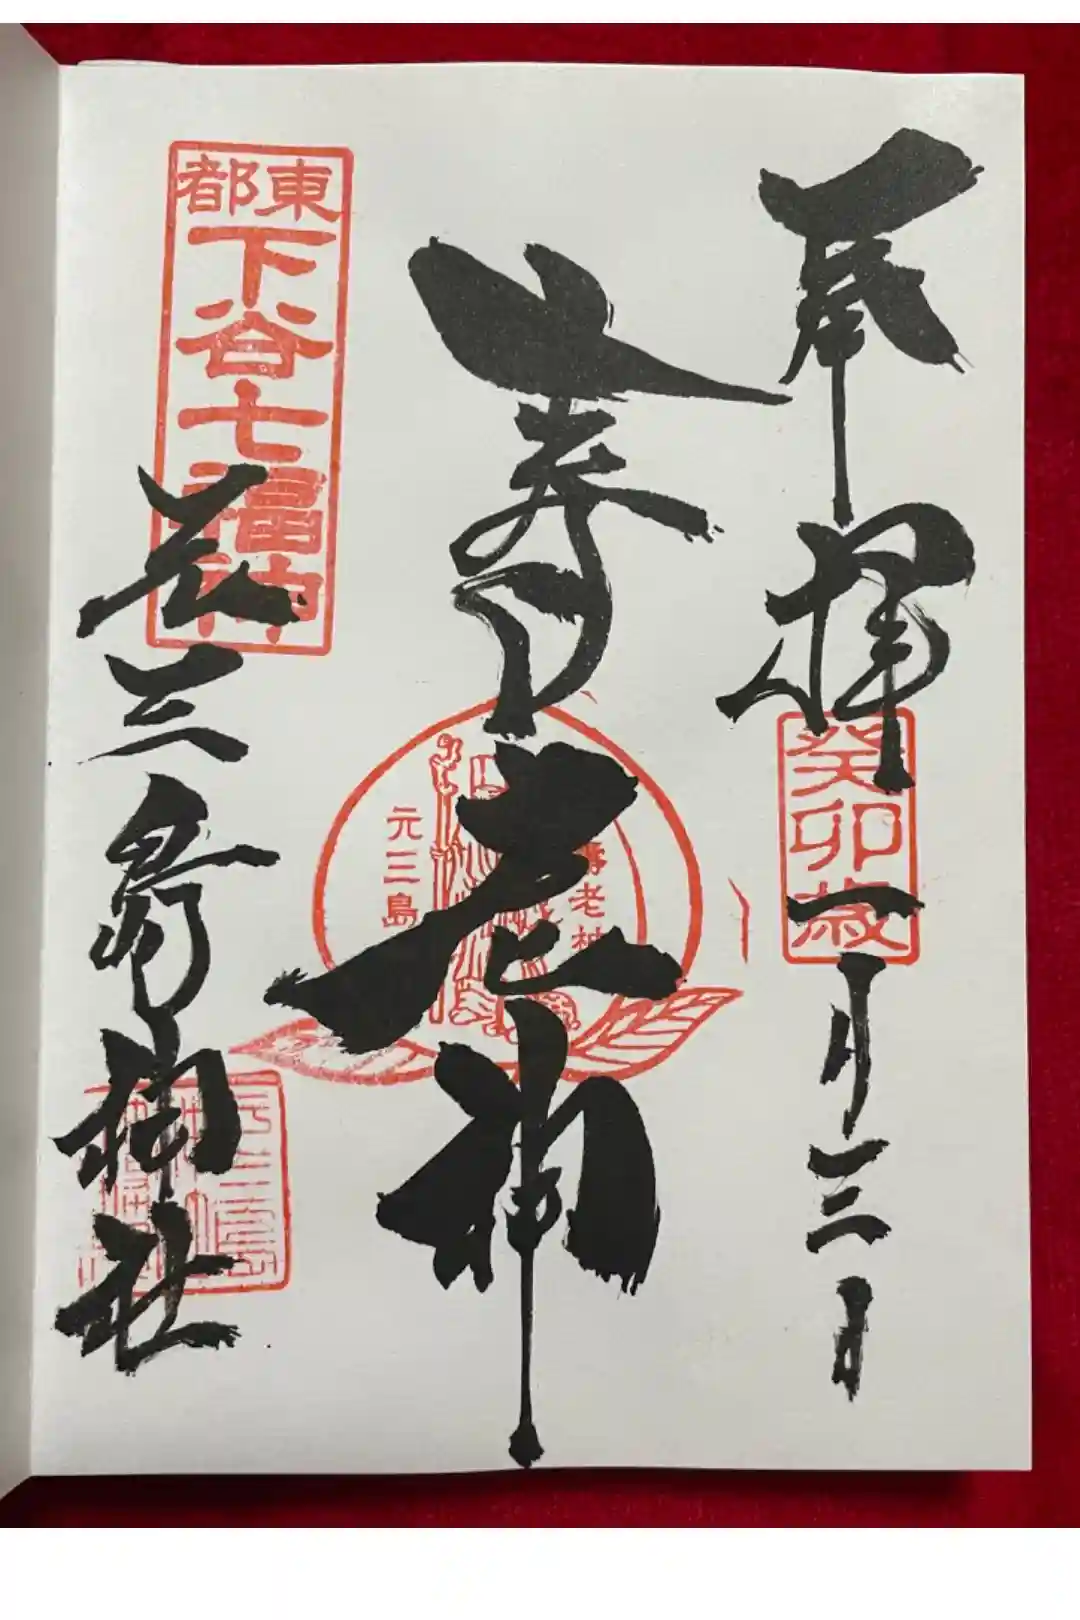 奉拝
癸卯歳
一月三日
寿老神
壽老神
元三島
東都
下谷七福神
元三島神社